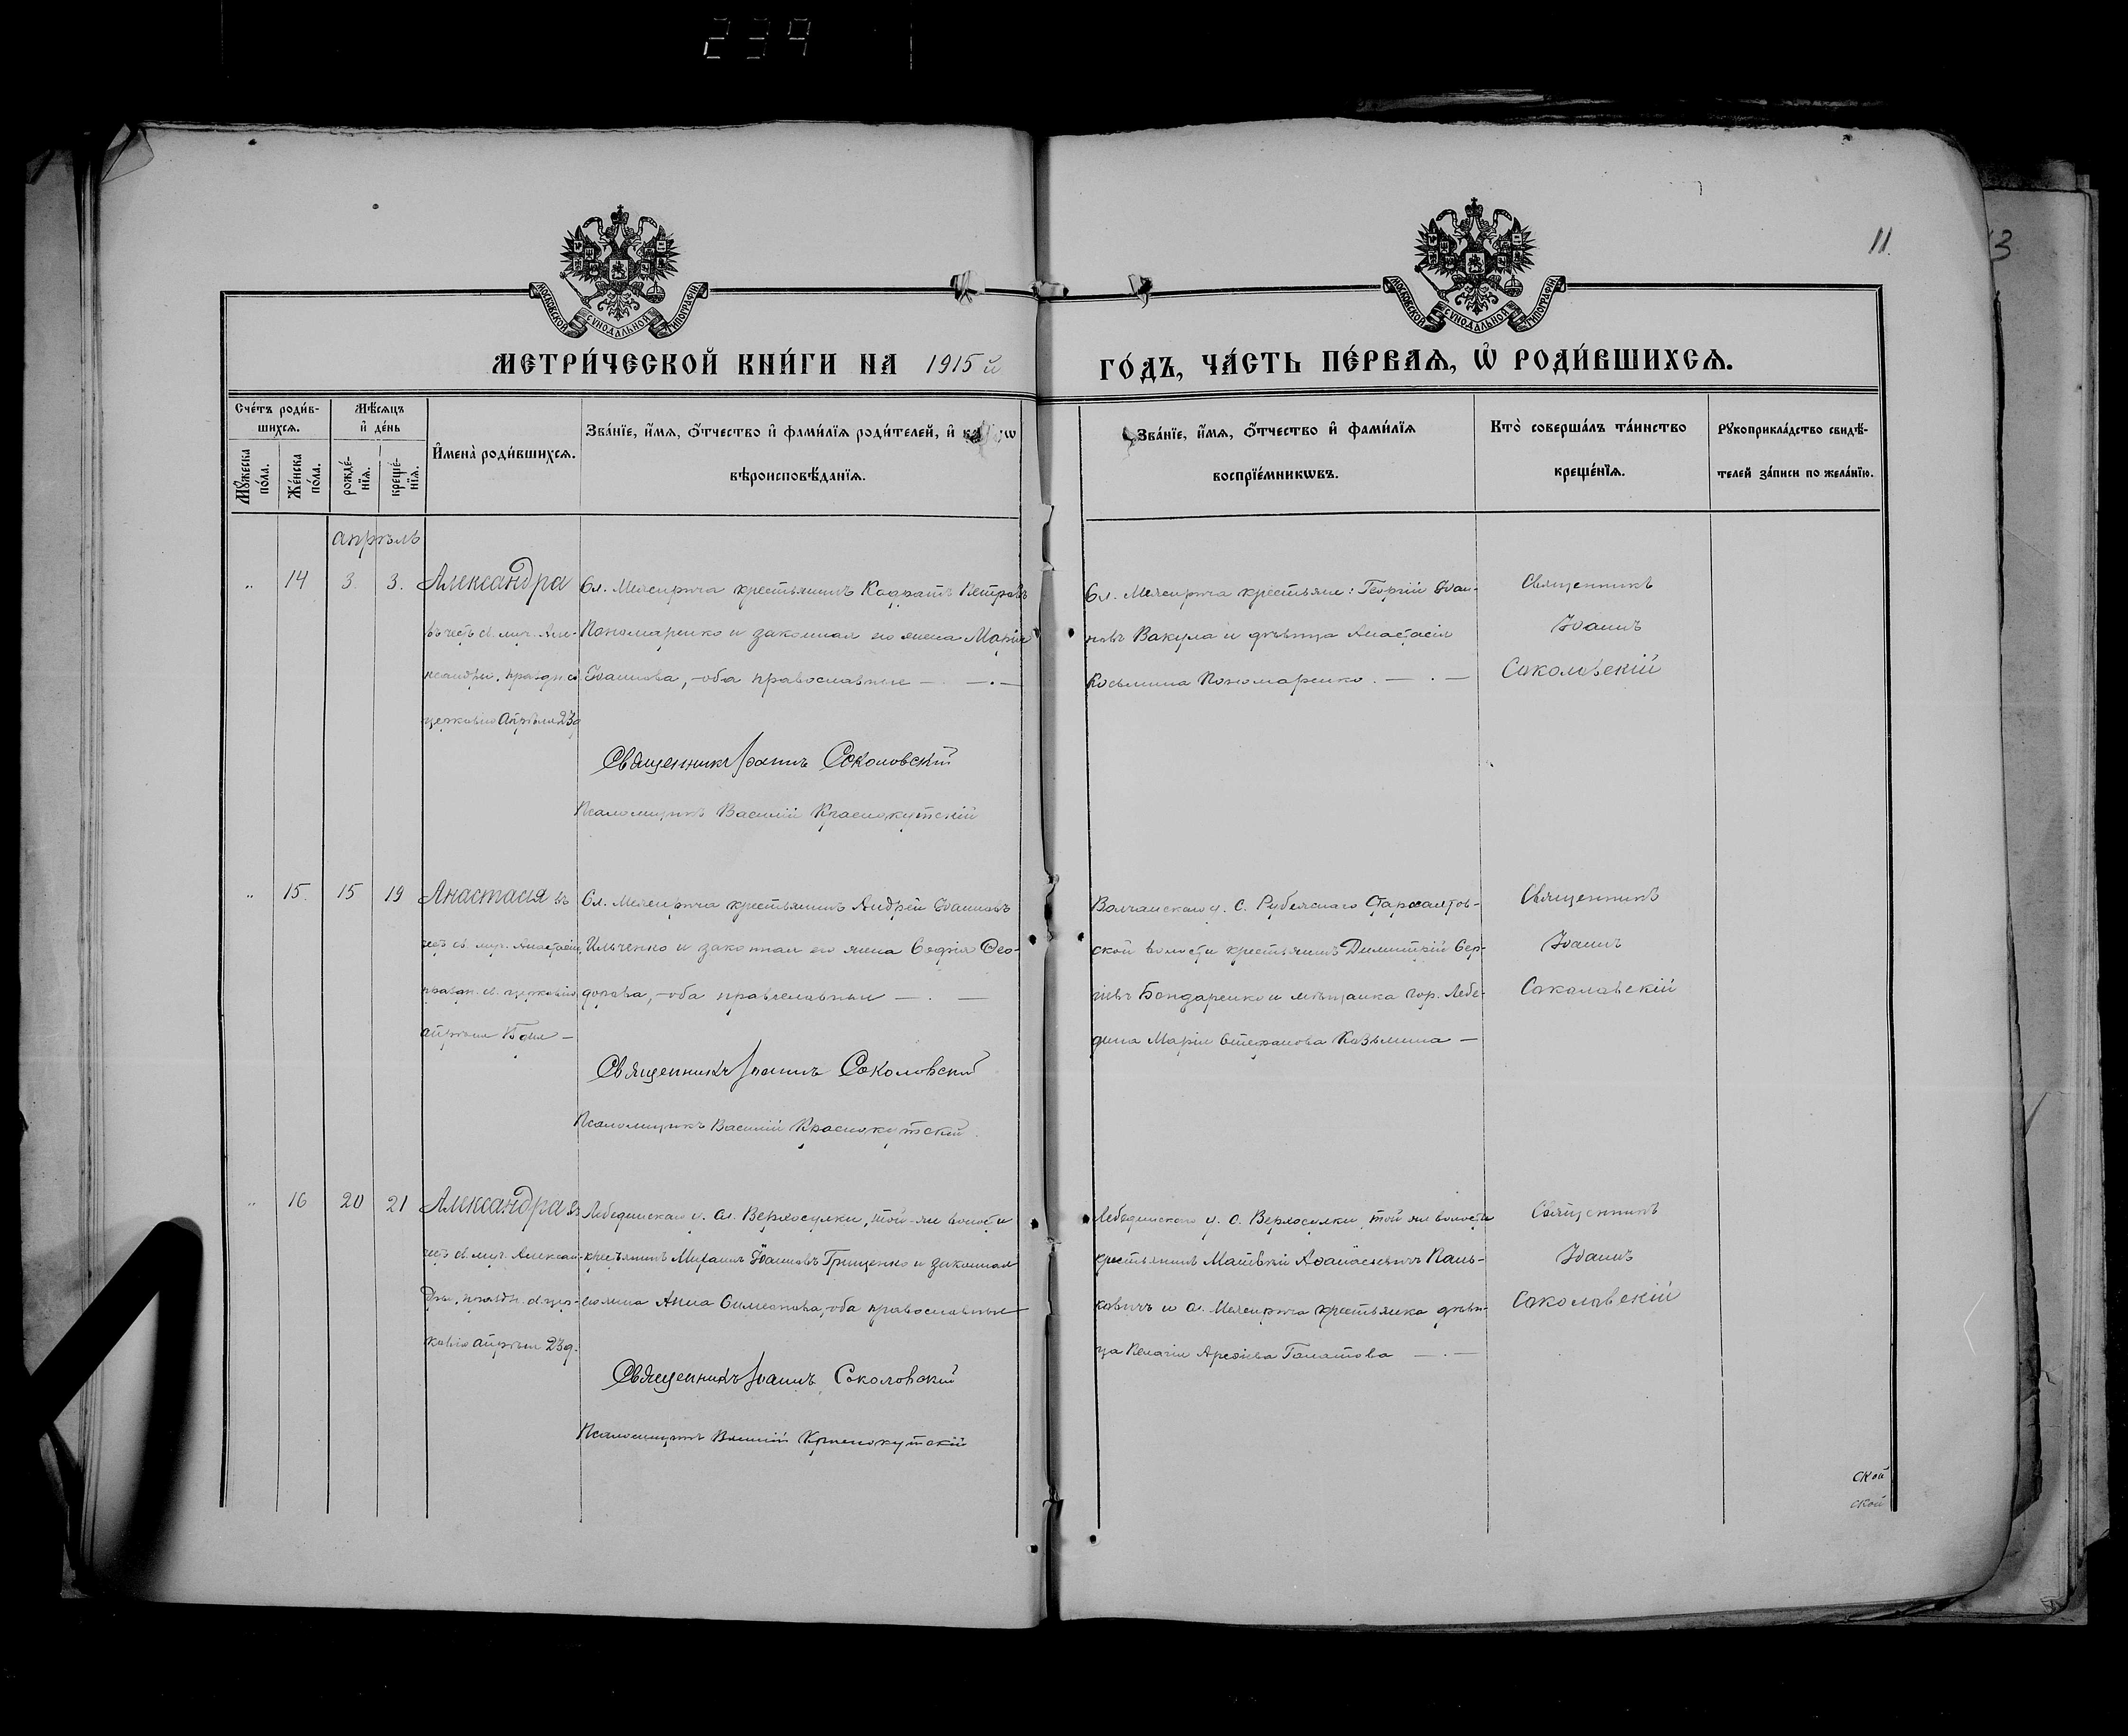 239
11.
13
МОСКОВСКОЙ СѴНОДАЛЬНОЙ ТИПОГРАФІИ
МОСКОВСКОЙ СѴНОДАЛЬНОЙ ТИПОГРАФІИ
МЕТРИ́ЧЕСКОЙ КНИ́ГИ НА 1915 й
ГО́ДЪ, ЧА́СТЬ ПЕ́РВАѦ, Ѽ РОДИ́ВШИХСѦ.
Сче́тъ роди́в-
шихсѧ.
Мѣ́сѧцъ
и҆ де́нь
Мꙋ́жеска
по́ла.
Же́нска
по́ла.
рожде́-
нїѧ.
креще́-
нїѧ.
И҆мена̀ роди́вшихсѧ.
Зва́нїе, и҆́мѧ, ѻ҆́тчество и҆ фами́лїѧ роди́телей, и҆
вѣроисповѣ́данїѧ.
Зва́нїе, и҆́мѧ, ѻ҆́тчество и҆ фами́лїѧ
воспрїе́мникѡвъ.
Кто̀ соверша́лъ та́инство
креще́нїѧ.
Рꙋкоприкла́дство свидѣ́-
телей за́писи по жела́нїю.
апрѣль
„ 14 3. 3. Александра
въ честь св. муч. Але-
ксандры, праздн. св.
церковію Апрѣля 23 д
Сл. Межирича крестьянинъ Кодратъ Петровъ
Пономаренко и законная его жена Марія
Іоаннова, - оба православные — . —
Священникъ Іоаннъ Соколовскій
Псаломщикъ Василій Краснокутскій
Сл. Межирича крестьяне: Георгій Іоан-
новъ Вакула и дѣвица Анастасія
Косьмина Пономаренко . — . —
Священникъ
Іоаннъ
Соколовскій
„ 15. 15 19 Анастасія въ
честь св. муч. Анастасіи,
праздн. св. церковію
апрѣля 15 дня —
Сл. Межирича крестьянинъ Андрей Іоанновъ
Ильченко и законная его жена Софія Ѳео-
дорова, - оба православные — . —
Священникъ Іоаннъ Соколовскій
Псаломщикъ Василій Краснокутскій.
Волчанскаго у. с. Рубежнаго Старосалтов-
ской волости крестьянинъ Димитрій Сер-
гіевъ Бондаренко и мѣщанка гор. Лебе-
дина Марія Стефанова Козьмина —
Священникъ
Іоаннъ
Соколовскій
„ 16 20 21 Александра въ
честь св. муч. Алексан-
дры, праздн. св. цер-
ковію апрѣля 23 д.
Лебединскаго у. сл. Верхосулки, той-же волости
крестьянинъ Михаилъ Іоанновъ Грищенко и законная
его жена Анна Симеонова, - оба православные
Священникъ Іоаннъ Соколовскій
Псаломщикъ Василій Краснокутскій
Лебединскаго у. с. Верхосулки, той же волости
крестьянинъ Матвѣй Аѳанасіевичъ Пань-
ковичъ и сл. Межирича крестьянка дѣви-
ца Пелагія Ареѳіева
Священникъ
Іоаннъ
Соколовскій
ской
ской